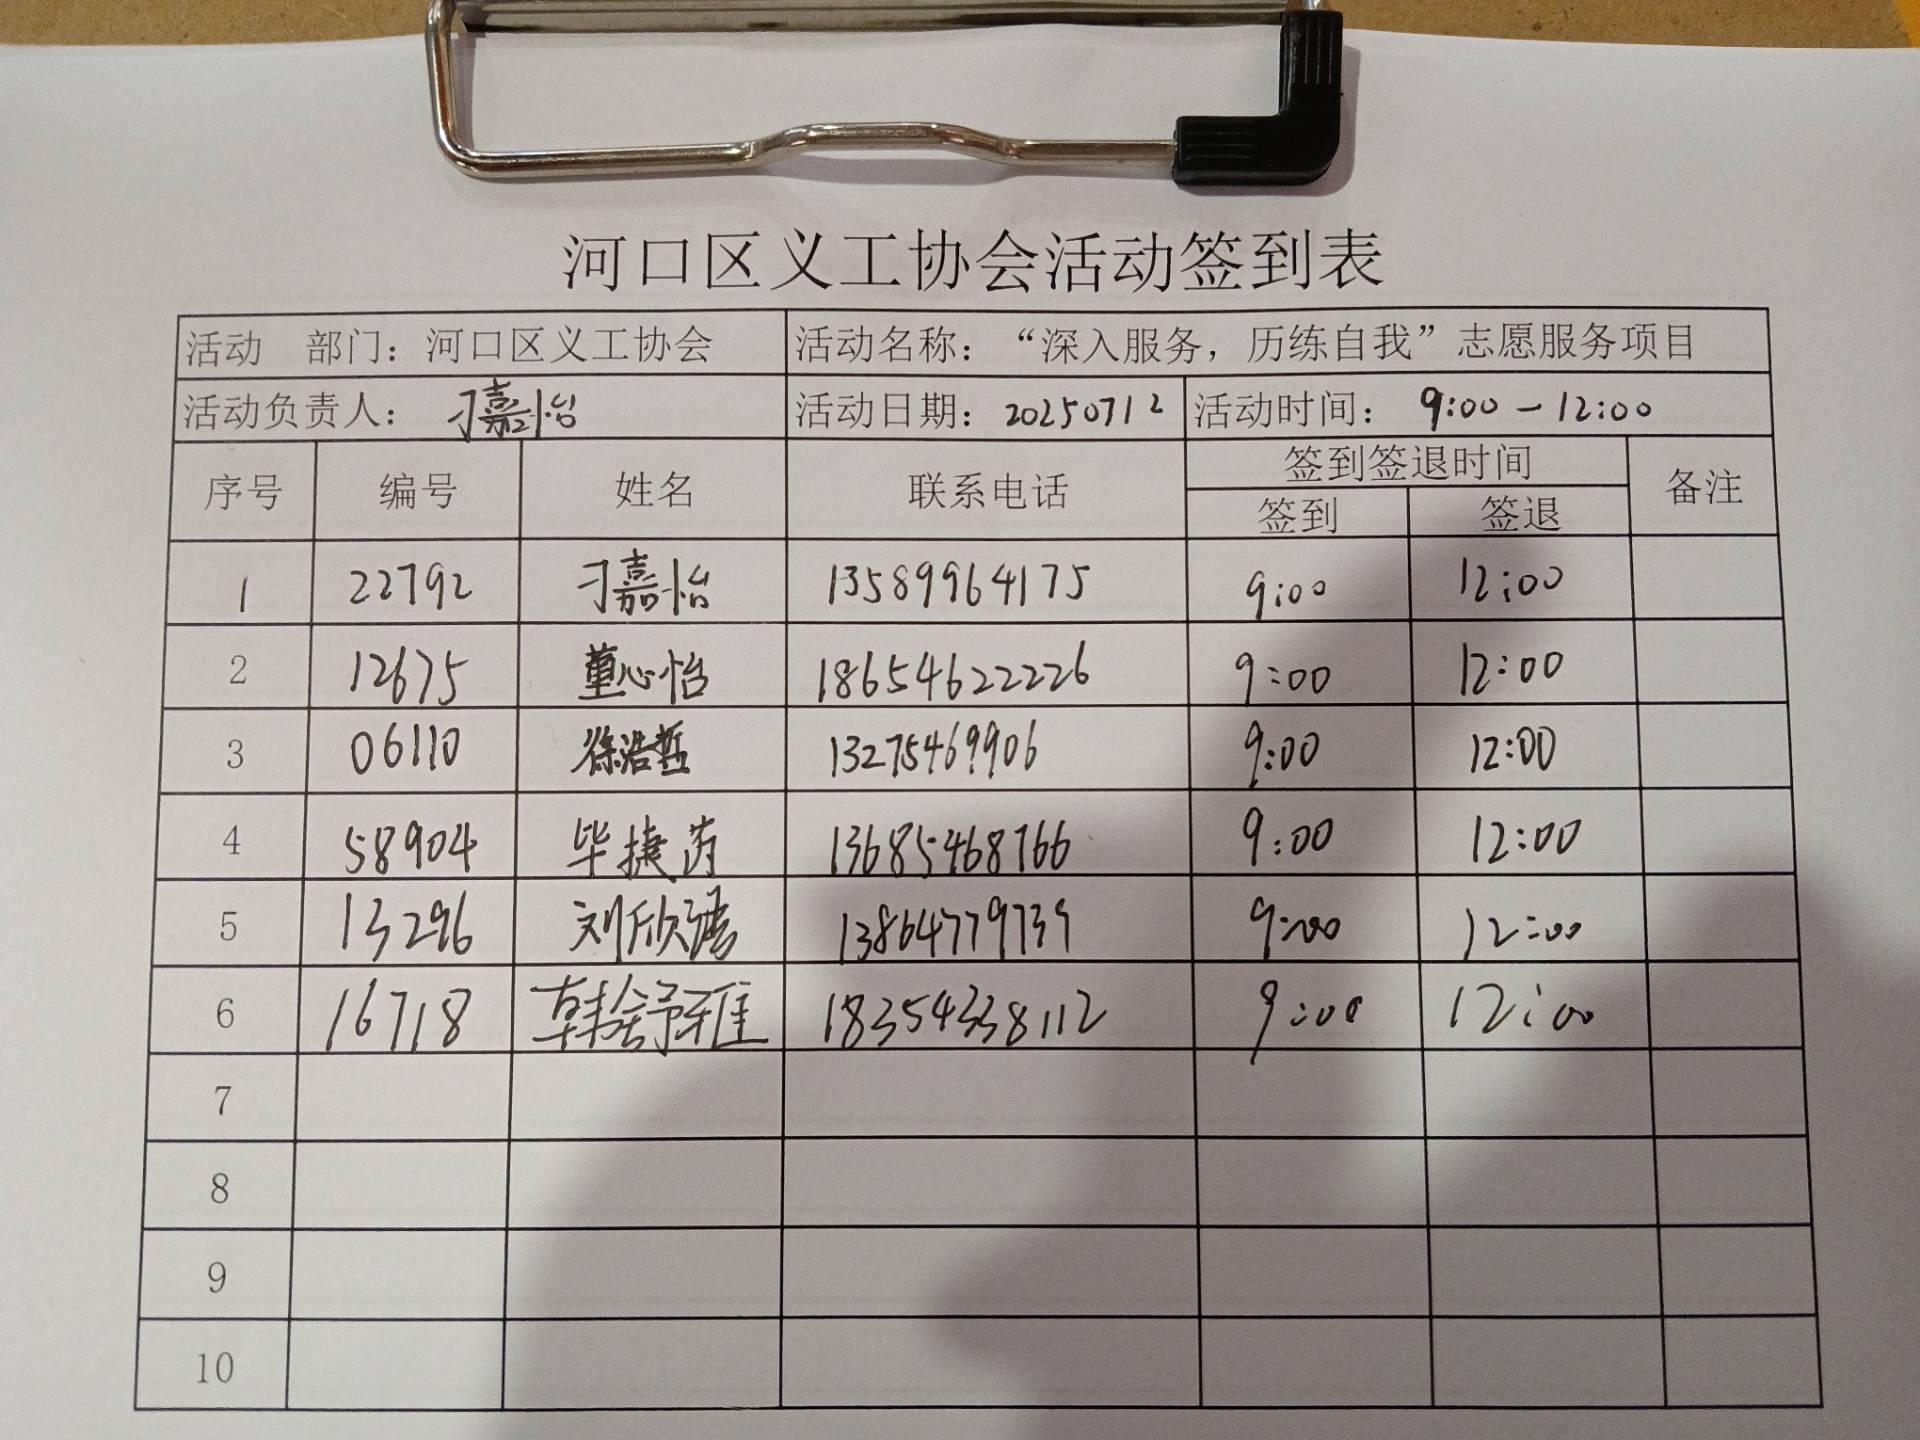 河口区义工协会活动签到表
活动 部门：河口区义工协会 活动名称：“深入服务，历练自我”志愿服务项目
活动负责人：刁嘉怡 活动日期：20250712 活动时间：9:00－12:00
序号 编号 姓名 联系电话 签到签退时间 备注
签到 签退
1 22792 刁嘉怡 13589964175 9:00 12:00
2 12675 董心怡 18654622226 9:00 12:00
3 06110 徐浩哲 13275469906 9:00 12:00
4 58904 毕捷芮 13685468766 9:00 12:00
5 13296 刘欣 13864779739 9:00 12:00
6 16718 韩舒雅 18354338112 9:00 12:00
7
8
9
10